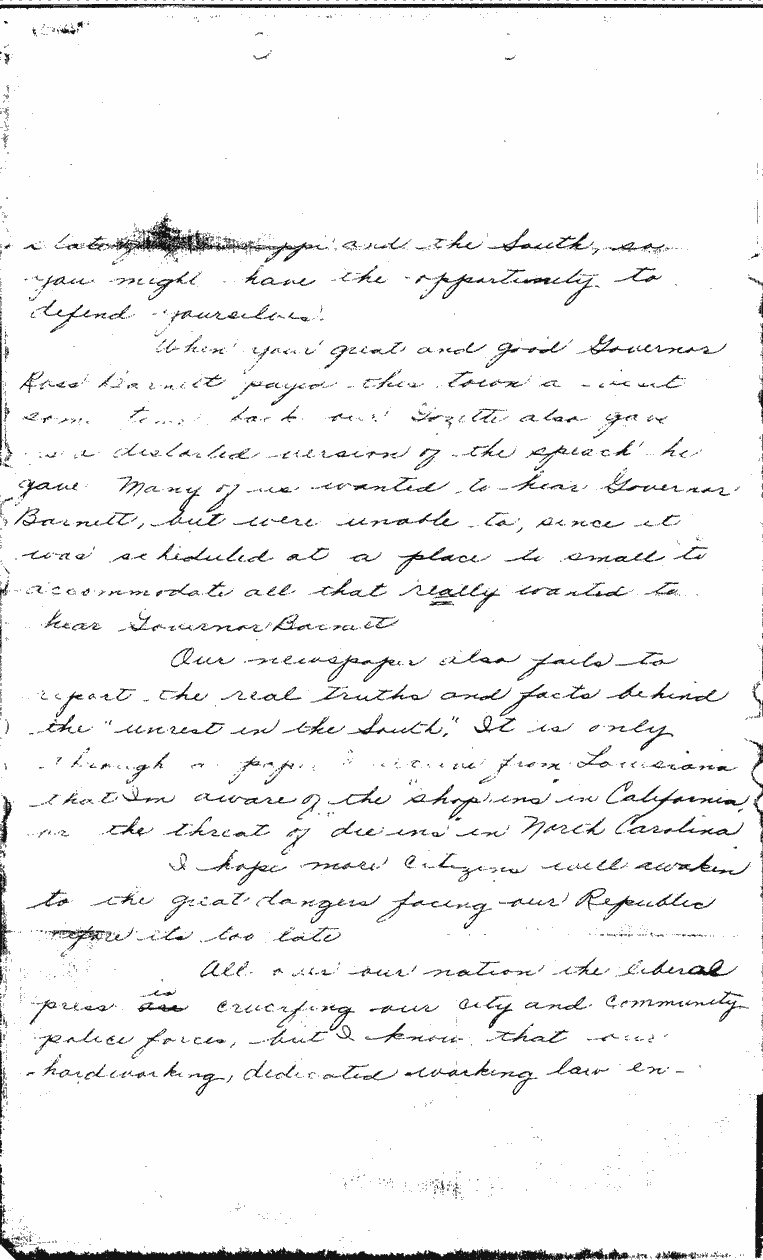 and the South, so
you might have the opportunity to
defend yourselves.
When your great and good Governor
Ross Barnett payed this town a visit
some time back our Gazette also gave
us a distorted version of the speach he
gave. Many of us wanted to hear Governor
Barnett, but were unable to, since it
was scheduled at a place to small to
accommodate all that really wanted to
hear Governor Barnett
Our newspaper also fails to
report the real truths and facts behind
the "unrest in the South," It is only
through a paper I receive from Louisiana
that Im aware of the "shop ins" in California,
or the threat of "die ins" in North Carolina
I hope more citizens will awaken
to the great dangers facing our Republic
before its too late
All over our nation the liberal
press is crucifying our city and community
police forces, but I know that our
hardworking, dedicated working law en-